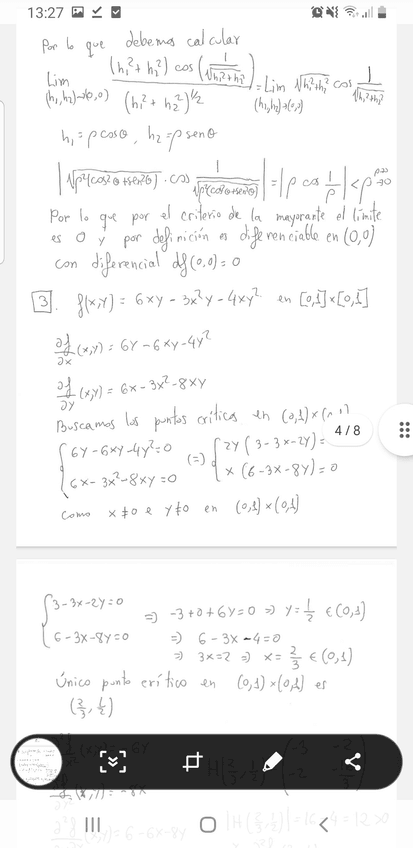 13:27
Por lo que debemos calcular
Lim (h₁,h₂)→(0,0) (h₁²+h₂²) cos (1/√(h₁²+h₂²)) / (h₁²+h₂²)^(1/2) = Lim (h₁,h₂)→(0,0) √(h₁²+h₂²) cos 1/√(h₁²+h₂²)
h₁ = ρ cosθ, h₂ = ρ senθ
|√(ρ²(cos²θ+sen²θ)) · cos 1/√(ρ²(cos²θ+sen²θ))| = |ρ cos 1/ρ| < ρ →0
Por lo que por el criterio de la mayorante el límite
es 0 y por definición es diferenciable en (0,0)
con diferencial df(0,0) = 0
3. f(x,y) = 6xy - 3x²y - 4xy² en [0,1]×[0,1]
∂f/∂x (x,y) = 6y - 6xy - 4y²
∂f/∂y (x,y) = 6x - 3x² - 8xy
Buscamos los puntos críticos en (0,1)×
4/8
{6y - 6xy - 4y² = 0 (=) {2y (3 - 3x - 2y) =
{6x - 3x² - 8xy = 0 {x (6 - 3x - 8y) = 0
como x ≠ 0 e y ≠ 0 en (0,1)×(0,1)
{3 - 3x - 2y = 0 =) -3 + 0 + 6y = 0 =) y = 1/2 ∈ (0,1)
{6 - 3x - 8y = 0 =) 6 - 3x - 4 = 0
=) 3x = 2 =) x = 2/3 ∈ (0,1)
Único punto crítico en (0,1)×(0,1) es
(2/3, 1/2)